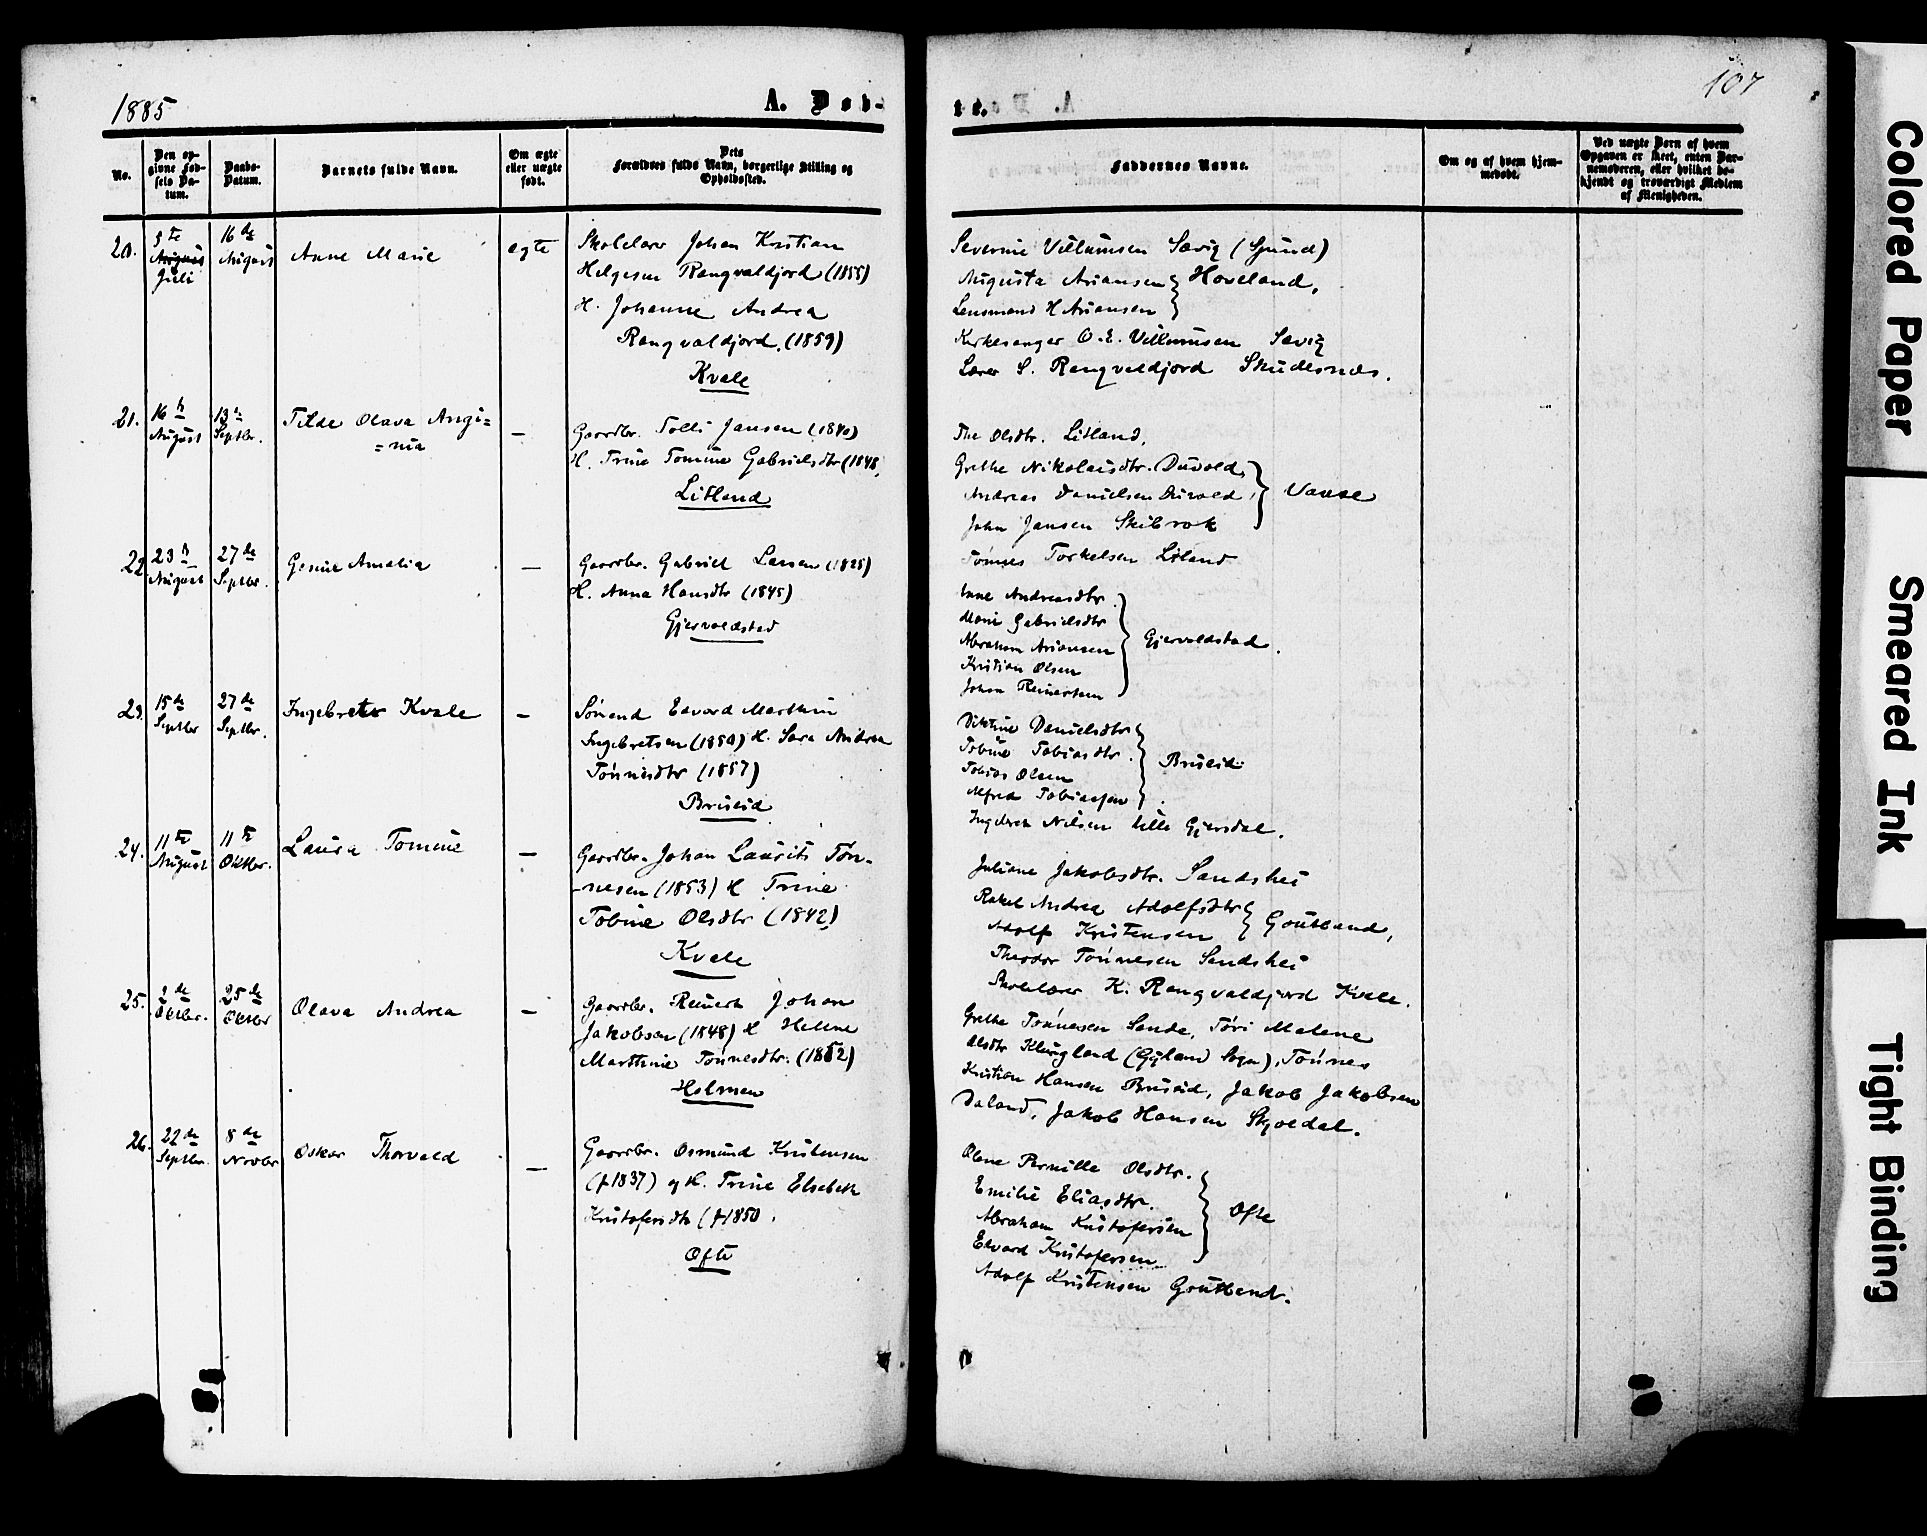 1885
A. Døb-
te.
107
No.
Den op-
givne Fød-
sels Da-
tum.
Daabs-
Datum.
Barnets fulde Navn.
Om ægte
eller uægte
født.
Dets
Forældres fulde Navn, borgerlige Stilling og
Opholdssted.
Faddernes Navne.
Om og af hvem hjem-
medøbt.
Ved uægte Børn af hvem
Opgaven er skeet, enten Bar-
nemoderen, eller hvilket be-
kjendt og troværdigt Medlem
af Menigheden.
20.
5te
August
Juli
16de
August
Anne Marie
ægte
Skolelærer Johan Kristian
Helgesen Rangvaldjord (1855)
H. Johanne Andrea
Rangvaldjord. (1859)
Kvale
Severine Villumsen Sævig (Spind)
Augusta Ariansen } Hoveland,
Lensmand H Ariansen
Kirkesanger O. E. Villumsen Sævig
Lærer S. Rangvaldjord Skudesnæs.
21.
16
August
13
Septbr.
Tilde Olava Angi=
=nia
—
Gaardbr. Tolli Jansen (1840)
H. Trine Tomine Gabrielsdtr (1848,
Litland
Olsdtr. Litland,
Grethe Nikolaisdtr. Duvold,
Andreas Danielsen Duvold, } Vanse
John Jansen Skibrok
Tønnes Torkelsen Litland
22
23
August
27de
Septbr.
Gesine Amalia
—
Gaardbr. Gabriel Larsen (1825)
H. Anna Hansdtr (1845)
Gjervoldstad
Anne Andreasdtr.
Marie Gabrielsdtr
Abraham Ariansen } Gjervoldstad.
Kristian Olsen
Johan Reinertsen
23.
15de
Septbr
27de
Septbr.
Ingebret Kvale
—
Edvard Marthin
Ingebretsen (1850) H. Sara Andrea
Tønnesdtr (1857)
Brüseid
Danielsdtr
Tobine Tobiasdtr. } Brüseid
Tobias Olsen
Alfred Tobiassen
Ingebret Nilsen lille Gjersdal.
24.
11te
August
11te
Oktbr.
Laura Tomine
—
Gaardbr. Johan Laurits Tøn-
-nesen (1853) H Trine
Tobine Olsdtr (1842)
Kvale
Juliane Jakobsdtr. Sandshei
Rakel Andrea Adolfsdtr
Adolf Kristensen } Goutland,
Theodor Tønnesen Sandshei
Skolelærer K. Rangvaldjord Kvale.
25.
2de
Oktbr.
25de
Oktbr
Olava Andrea
—
Gaardbr. Reinert Johan
Jakobsen (1848) H Helene
Marthine Tønnesdtr. (1852)
Holmen
Grethe Tønnesen Sande, Tøri Malene
Olsdtr Klungland (Gyland Sogn), Tønnes
Kristian Hansen Brüseid, Jakob Jakobsen
Daland, Jakob Hansen Skjoldal.
26.
22de
Septbr.
8de
Novbr
Oskar Thorvald
—
Gaardbr. Osmund Kristensen
(f 1837) og H. Trine Elsebeth
Kristofersdtr (f 1850.
Ofte
Olene Pernille Olsdtr.
Emilie Eliasdtr.
Abraham Kristofersen } Ofte
Edvard Kristofersen
Adolf Kristensen Goutland.
Colored Paper
Smeared Ink
Tight Binding